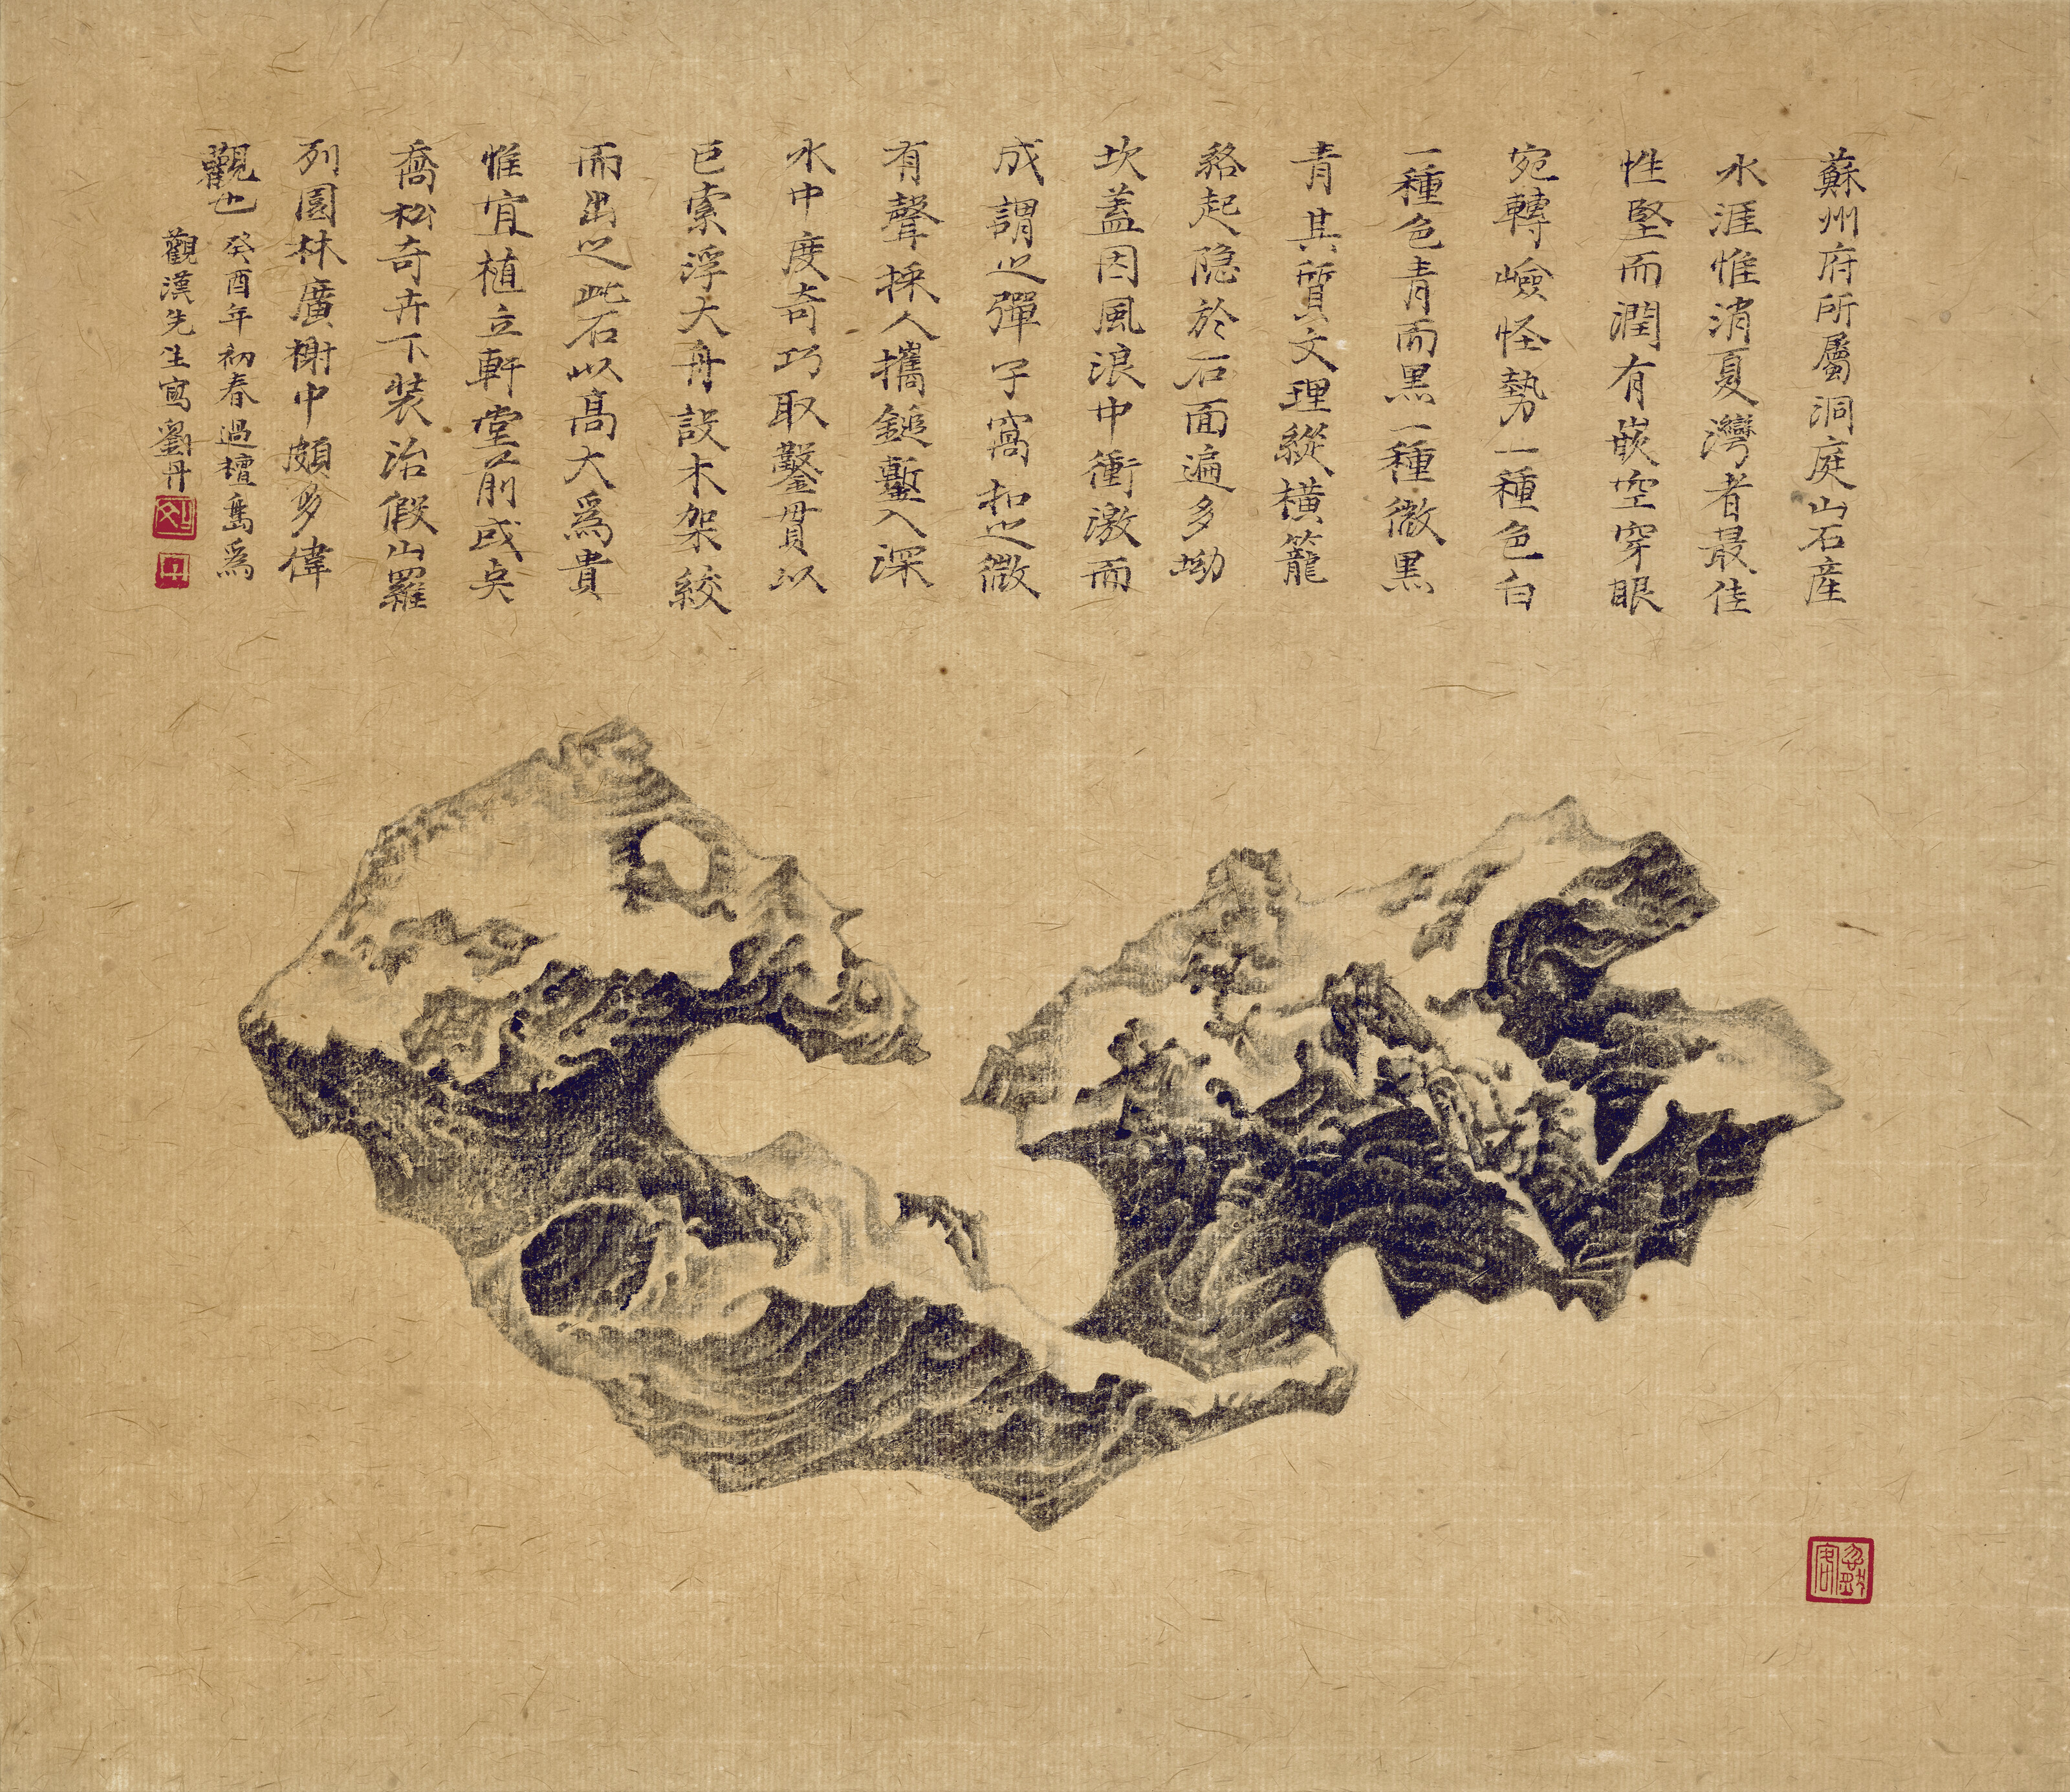 蘇州府所屬洞庭山石産
水涯惟消夏灣者最佳
性堅而潤有嵌空穿眼
宛轉嶮怪勢一種色白
一種色青而黑一種微黑
青其質文理縱橫籠
絡起隐於石面遍多坳
坎蓋因風浪中衝激而
成謂之彈子窩扣之微
有聲採人攜鎚鏨入深
水中度奇巧取鑿貫以
巨索浮大舟設木架絞
而出之此石以高大爲貴
惟宜植立軒堂前或
喬松奇卉下裝治假山羅
列園林廣榭中頗多偉
觀也
癸酉年初春過檀島爲
觀漢先生寫劉丹